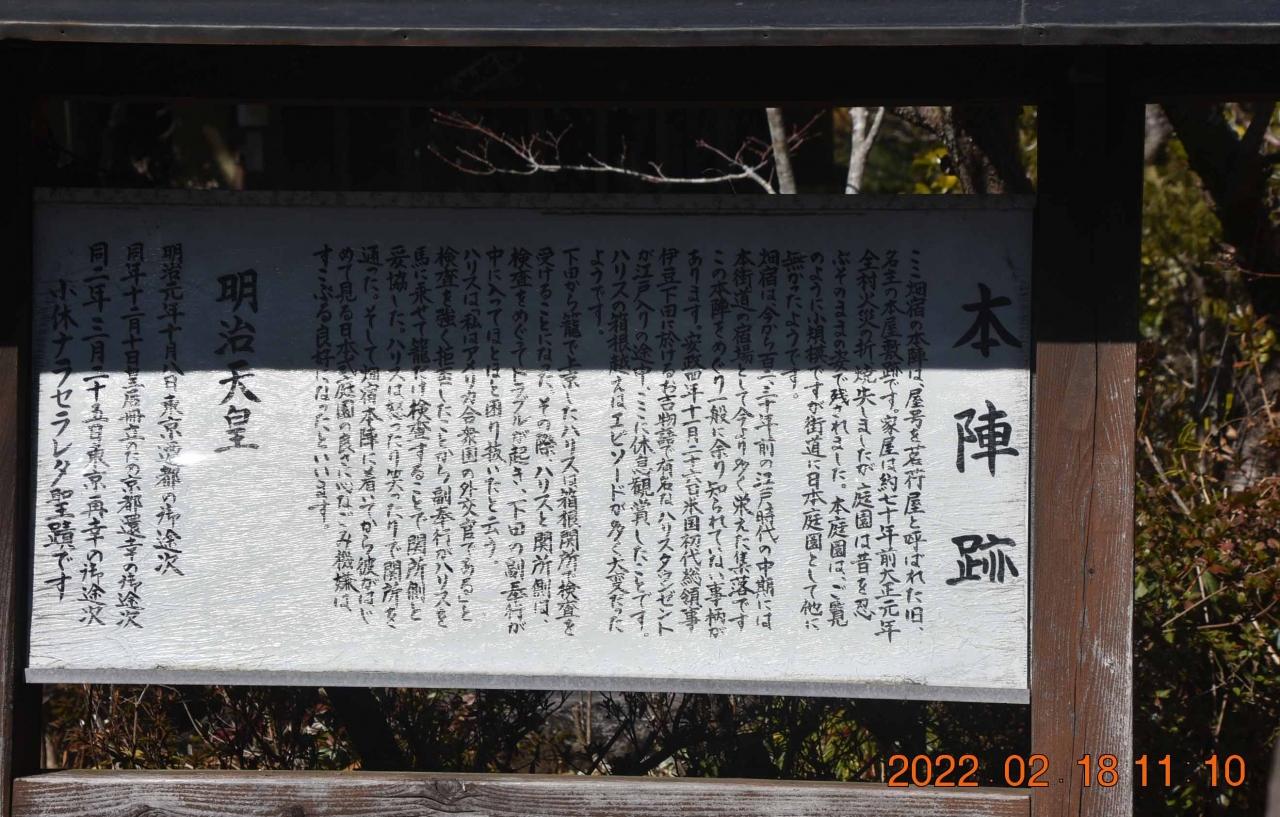 本陣跡
ここ畑宿の本陣は、屋号を茗荷屋と呼ばれた旧、
名主の本屋敷跡です。家屋は約七十年前大正元年
全村火災の折、焼失しましたが庭園は昔を忍
ぶそのままの姿で残されました。本庭園は、ご覧
のように小規模ですが街道に日本庭園として他に
無かったようです。
畑宿は今から百二三十年前の江戸時代の中期には
本街道の宿場として今より多く栄えた集落です
この本陣をめぐり一般に余り知られていない事柄が
あります。安政四年十一月二十六日米国初代総領事
伊豆下田に於けるお吉物語で有名なハリスタウンゼント
が江戸入りの途中、ここに休息観賞したことです。
ハリスの箱根越えはエピソードが多く大変だった
ようです。
下田から籠で上京したハリスは箱根関所で検査を
受けることになった。その際、ハリスと関所側は、
検査をめぐってトラブルが起き、下田の副奉行が
中に入ってほとほと困り抜いたと云う。
ハリスは「私はアメリカ合衆国の外交官である」と
検査を強く拒否したことから副奉行がハリスを
馬に乗せて籠だけ検査することで関所側と
妥協した。ハリスは怒ったり笑ったりで関所を
通った。そして畑宿本陣に着いてから彼がはじ
めて見る日本式庭園の良さに心なごみ機嫌は、
すこぶる良好になったといいます。
明治天皇
明治元年十月八日東京遷都の御途次
同年十二月十日皇后冊立の為京都還幸の御途次
同二年三月二十五日東京再幸の御途次
小休ナラセラレタ聖蹟です
2022.02.18 11:10